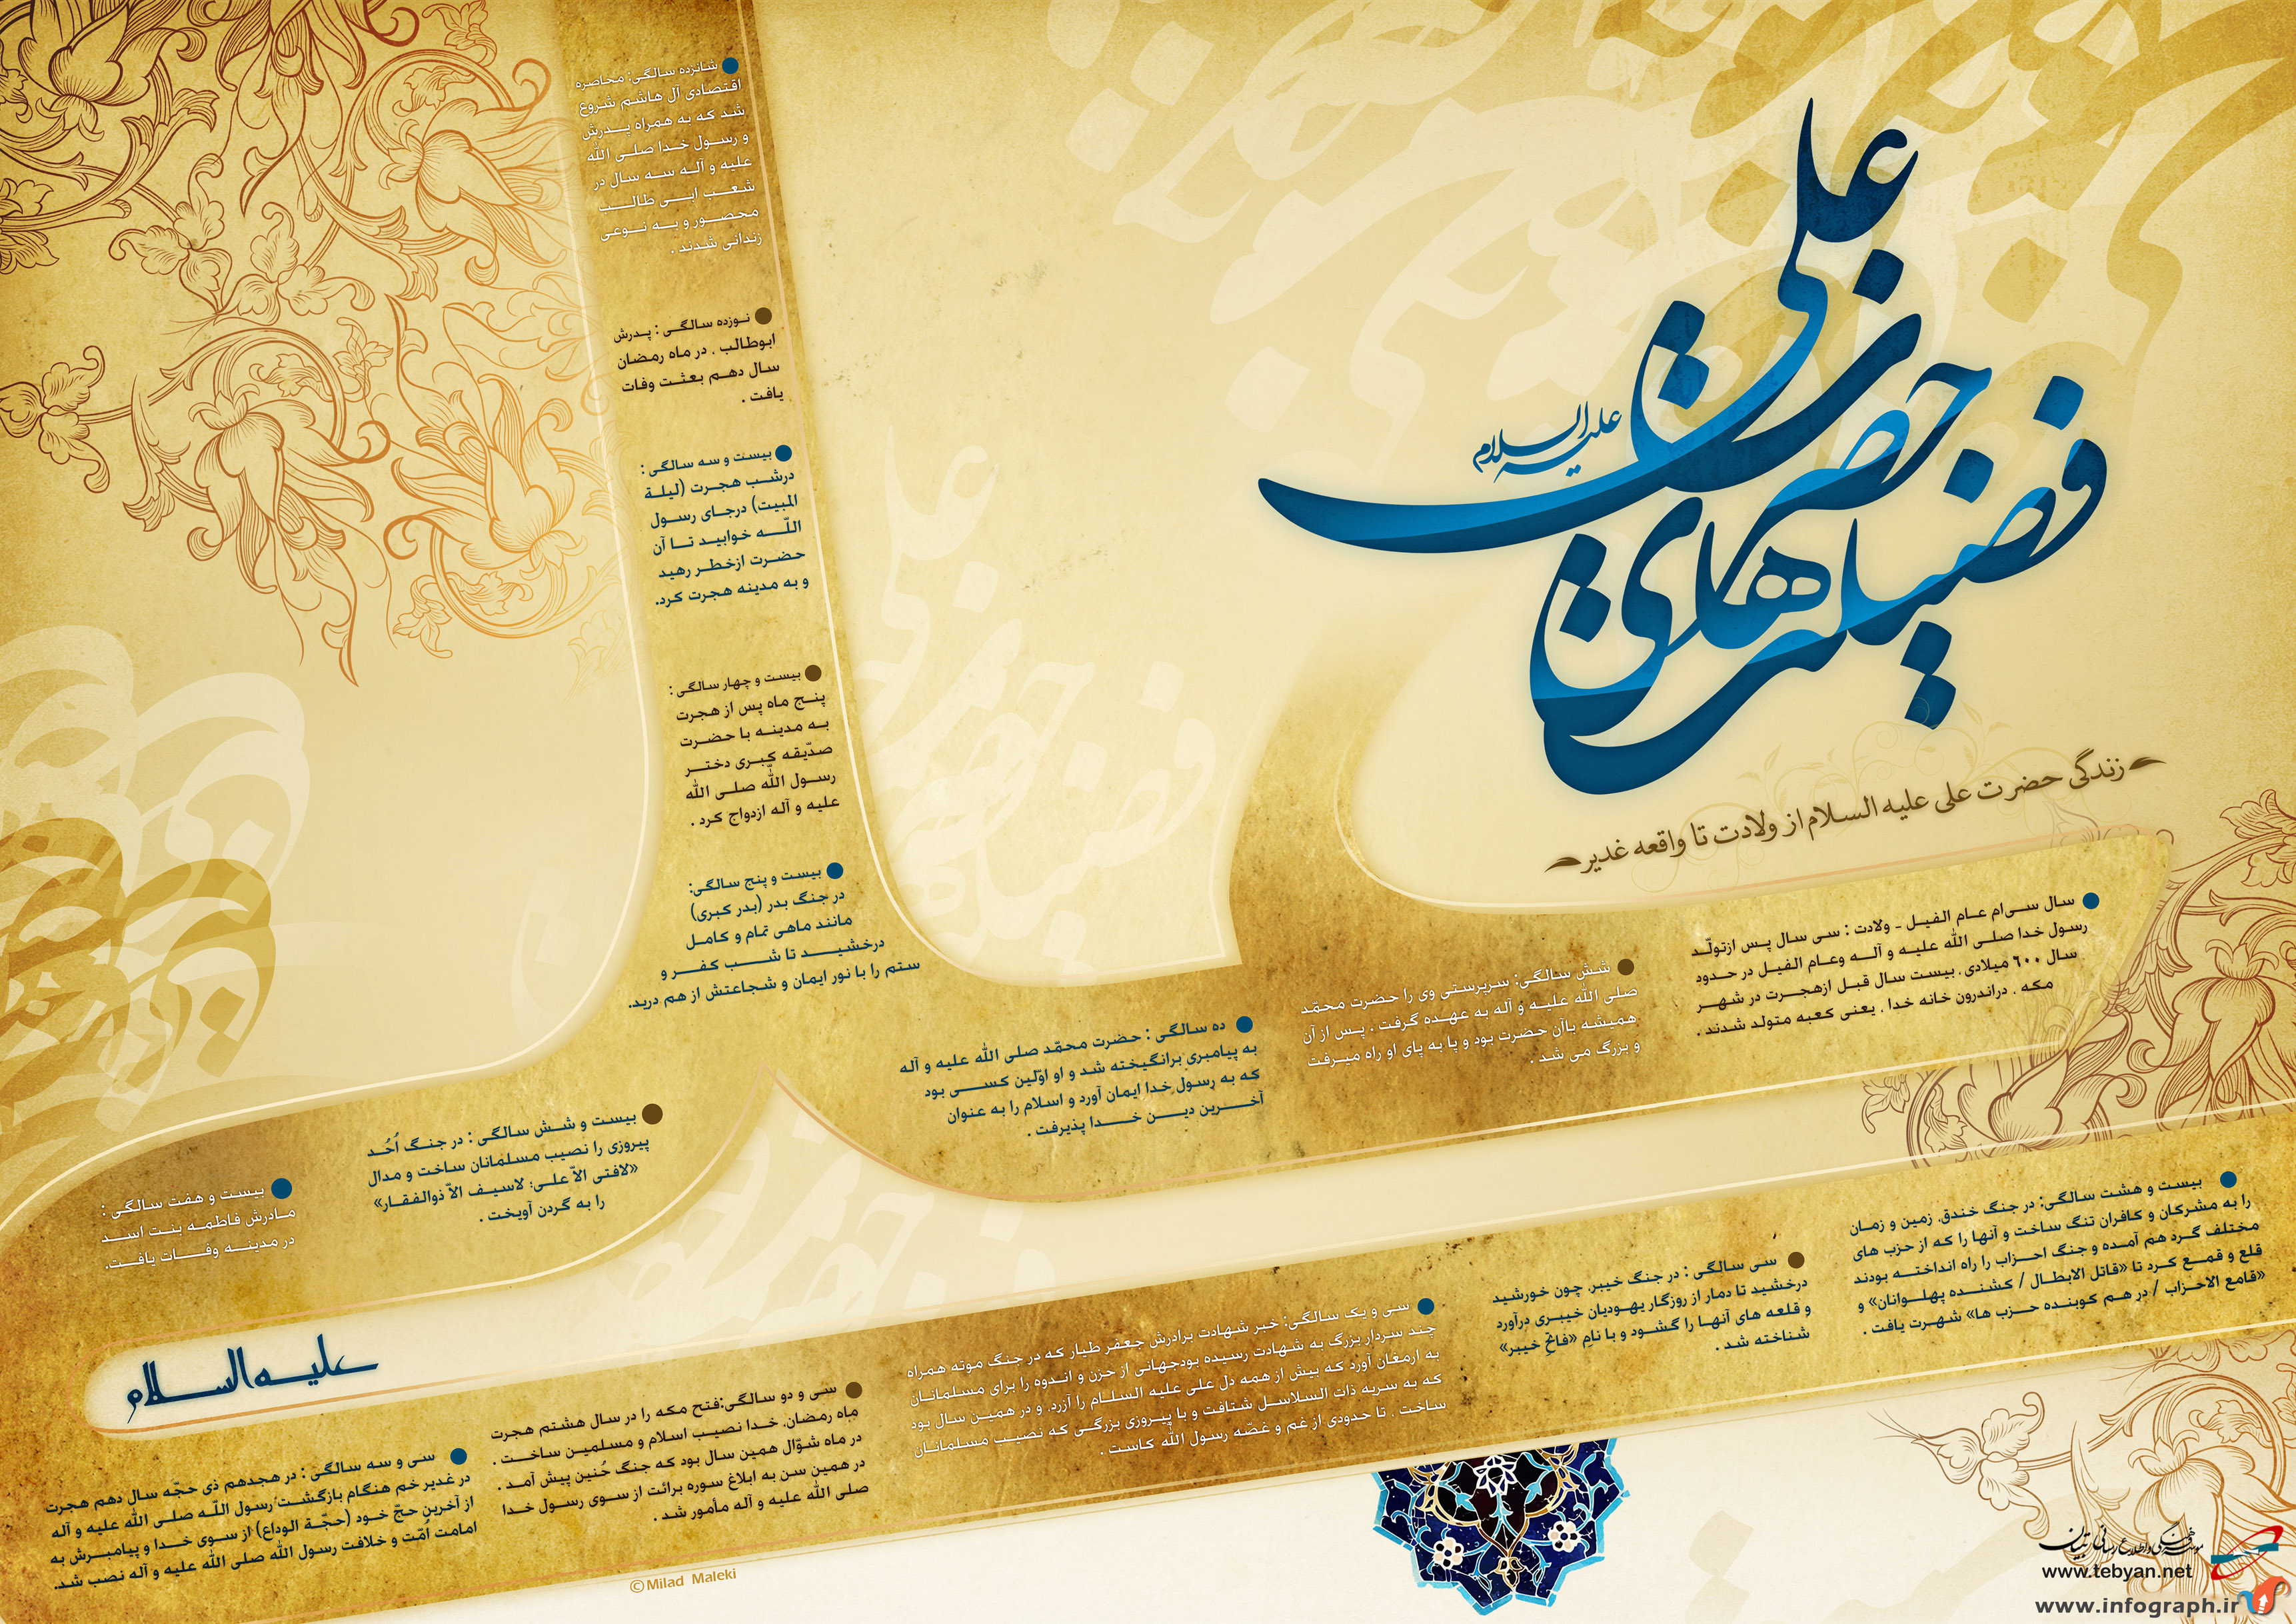 فضیلت های حضرت علی
علیه السلام
زندگی حضرت علی علیه السلام از ولادت تا واقعه غدیر
سال سی‌ام عام الفیل - ولادت : سی سال پس ازتولّد
رسول خدا صلی الله علیه و آله وعام الفیل در حدود
سال ۶۰۰ میلادی ، بیست سال قبل ازهجرت در شهر
مکه ، دراندرون خانه خدا ، یعنی کعبه متولد شدند .
شش سالگی: سرپرستی وی را حضرت محمّد
صلی الله علیه و آله به عهده گرفت ، پس از آن
همیشه باآن حضرت بود و پا به پای او راه میرفت
و بزرگ می شد .
ده سالگی : حضرت محمّد صلی الله علیه و آله
به پیامبری برانگیخته شد و او اوّلین کسی بود
که به رسول خدا ایمان آورد و اسلام را به عنوان
آخرین دین خدا پذیرفت .
شانزده سالگی: محاصره
اقتصادی آل هاشم شروع
شد که به همراه پدرش
و رسول خدا صلی الله
علیه و آله سه سال در
شعب ابی طالب
محصور و به نوعی
زندانی شدند .
نوزده سالگی : پدرش
ابوطالب ، در ماه رمضان
سال دهم بعثت وفات
یافت .
بیست و سه سالگی :
درشب هجرت (لیلة
المبیت) درجای رسول
اللّه خوابید تا آن
حضرت ازخطر رهید
و به مدینه هجرت کرد.
بیست و چهار سالگی :
پنج ماه پس از هجرت
به مدینه با حضرت
صدّیقه کبری دختر
رسول اللّه صلی الله
علیه و آله ازدواج کرد .
بیست و پنج سالگی:
در جنگ بدر (بدر کبری)
مانند ماهی تمام و کامل
درخشید تا شب کفر و
ستم را با نور ایمان و شجاعتش از هم درید.
بیست و شش سالگی : در جنگ اُحُد
پیروزی را نصیب مسلمانان ساخت و مدال
«لافتی الاّ علی؛ لاسیف الاّ ذوالفقار»
را به گردن آویخت .
بیست و هفت سالگی :
مادرش فاطمه بنت اسد
در مدینه وفات یافت.
علیه السلام
بیست و هشت سالگی: در جنگ خندق، زمین و زمان
را به مشرکان و کافران تنگ ساخت و آنها را که از حزب های
مختلف گرد هم آمده و جنگ احزاب را راه انداخته بودند
قلع و قمع کرد تا «قاتل الابطال / کشنده پهلوانان» و
«قامع الاحزاب / در هم کوبنده حزب ها» شهرت یافت .
سی سالگی : در جنگ خیبر، چون خورشید
درخشید تا دمار از روزگار یهودیان خیبری درآورد
و قلعه های آنها را گشود و با نام «فاتح خیبر»
شناخته شد .
سی و یک سالگی: خبر شهادت برادرش جعفر طیار که در جنگ موته همراه
چند سردار بزرگ به شهادت رسیده بودجهانی از حزن و اندوه را برای مسلمانان
به ارمغان آورد که بیش از همه دل علی علیه السلام را آزرد، و در همین سال بود
که به سریه ذات السلاسل شتافت و با پیروزی بزرگی که نصیب مسلمانان
ساخت ، تا حدودی از غم و غصّه رسول اللّه کاست .
سی و دو سالگی:فتح مکه را در سال هشتم هجرت
ماه رمضان، خدا نصیب اسلام و مسلمین ساخت .
در ماه شوّال همین سال بود که جنگ حُنین پیش آمد .
در همین سن به ابلاغ سوره برائت از سوی رسول خدا
صلی الله علیه و آله مأمور شد .
سی و سه سالگی : در هجدهم ذی حجّه سال دهم هجرت
در غدیر خم هنگام بازگشت رسول اللّه صلی الله علیه و آله
از آخرین حجّ خود (حجّة الوداع) از سوی خدا و پیامبرش به
امامت اُمّت و خلافت رسول اللّه صلی الله علیه و آله نصب شد.
©Milad Maleki
موسسه فرهنگی و اطلاع رسانی تبیان
www.tebyan.net
www.infograph.ir